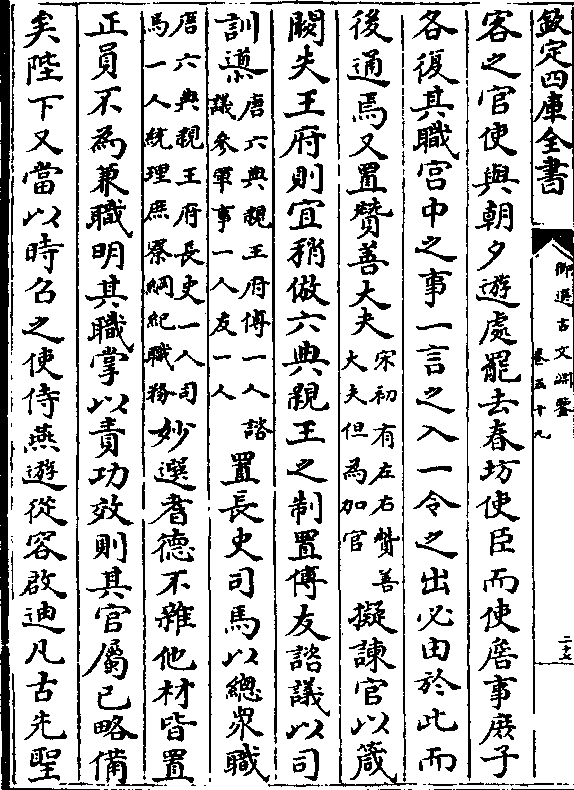 欽定四庫全書
御選古文淵鑒
卷五十九
客之官使與朝夕遊處罷去春坊使臣而使詹事庶子
各復其職宮中之事一言之入一令之出必由於此而
後通焉又置贊善大夫
宋初有左右贊善
大夫但為加官
擬諫官以箴
闕夫王府則宜稍倣六典親王之制置傅友諮議以司
訓導
唐六典親王府傅一人諮
議參軍事一人友一人
置長史司馬以總衆職
唐六典親王府長史一人司
馬一人統理庶寮綱紀職務
妙選耆德不雜他材皆置
正員不為兼職明其職掌以責功效則其官屬已略備
矣陛下又當以時召之使侍燕遊從容啟迪凡古先聖